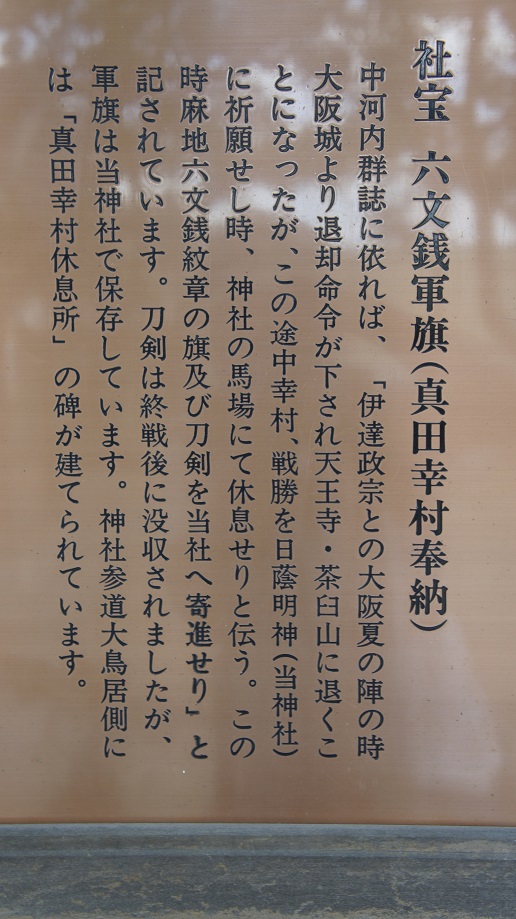 社宝 六文銭軍旗(真田幸村奉納)
中河内群誌に依れば、「伊達政宗との大阪夏の陣の時
大阪城より退却命令が下され天王寺・茶臼山に退くこ
とになったが、この途中幸村、戦勝を日蔭明神(当神社)
に祈願せし時、神社の馬場にて休息せりと伝う。この
時麻地六文銭紋章の旗及び刀剣を当社へ寄進せり」と
記されています。刀剣は終戦後に没収されましたが、
軍旗は当神社で保存しています。神社参道大鳥居側に
は「真田幸村休息所」の碑が建てられています。